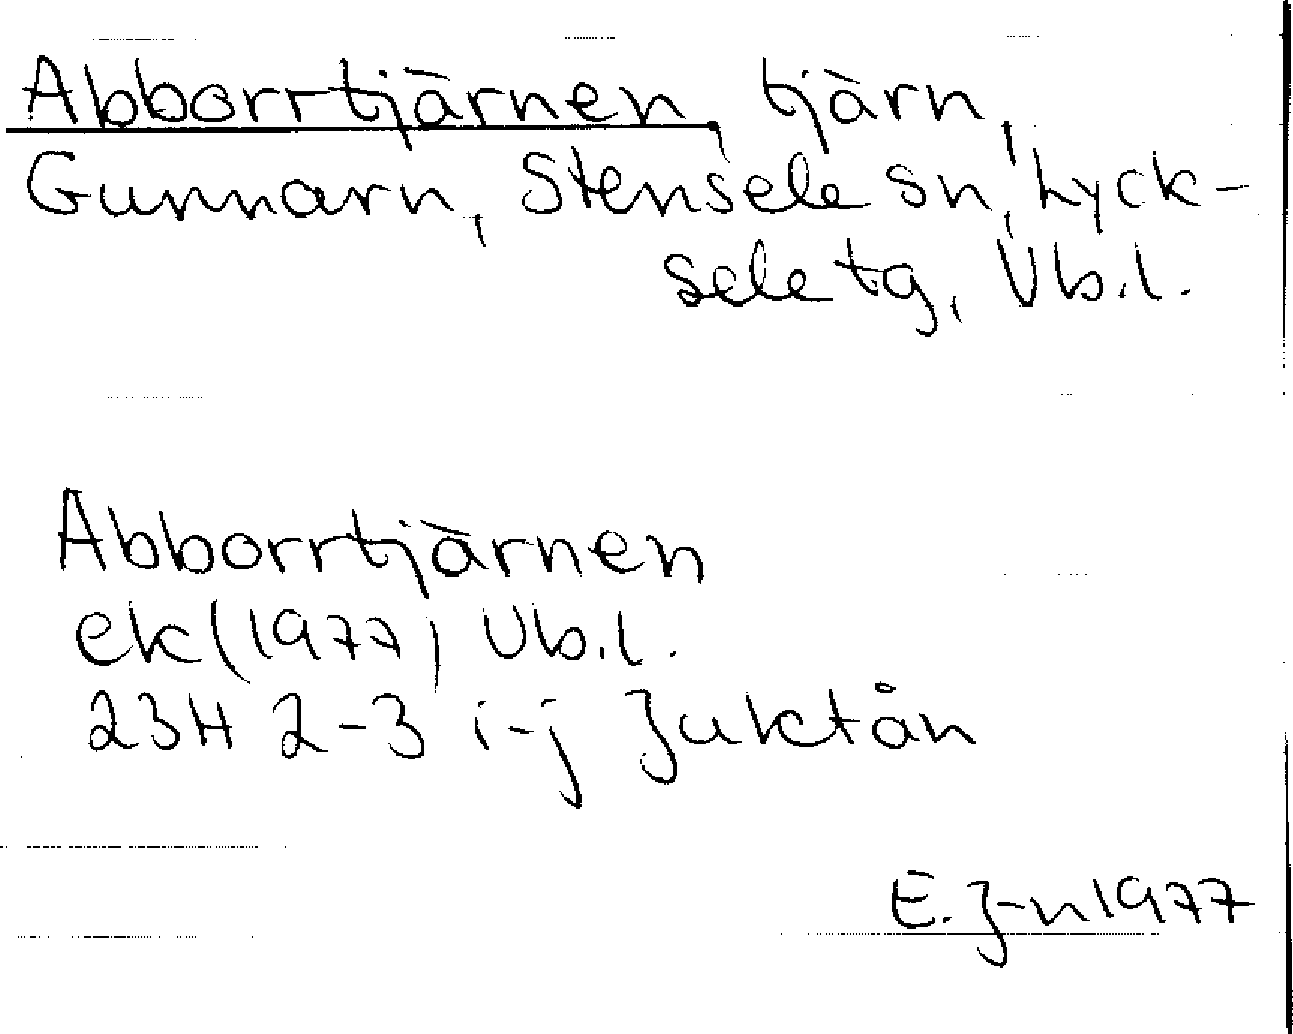 Abborrtjärnen, tjärn,
Gunnarn, Stensele sn, Lyck-
sele tg, Vb.l.
Abborrtjärnen
ek (1977) Vb.l.
23H 2-3 i-j Juktån
E. J-n 1977